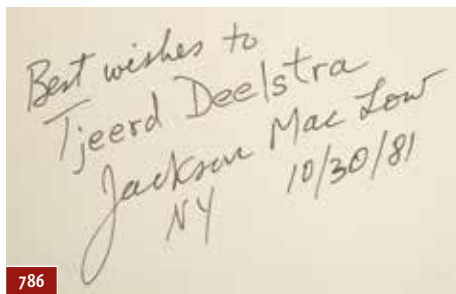 Best wishes to
Tjeerd Deelstra
Jackson Mac Low
NY 10/30/81
786